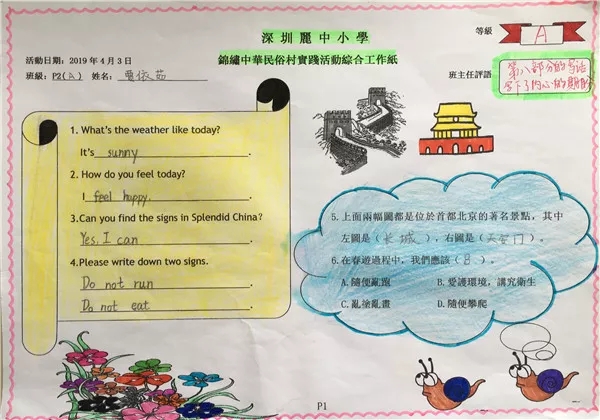 深圳麗中小學
等級 A
活動日期：2019年4月3日
錦繡中華民俗村實踐活動綜合工作紙
班級：P2(A) 姓名：
班主任評語
第八部分的
1. What's the weather like today?
It's sunny.
2. How do you feel today?
I feel happy.
3.Can you find the signs in Splendid China?
Yes, I can.
4.Please write down two signs.
Do not run.
Do not eat.
5.上面兩幅圖都是位於首都北京的著名景點，其中
左圖是（長城），右圖是（天安门）。
6.在春遊過程中，我們應該（B）。
A.隨便亂跑 B.愛護環境，講究衛生
C.亂塗亂畫 D.隨便攀爬
P1